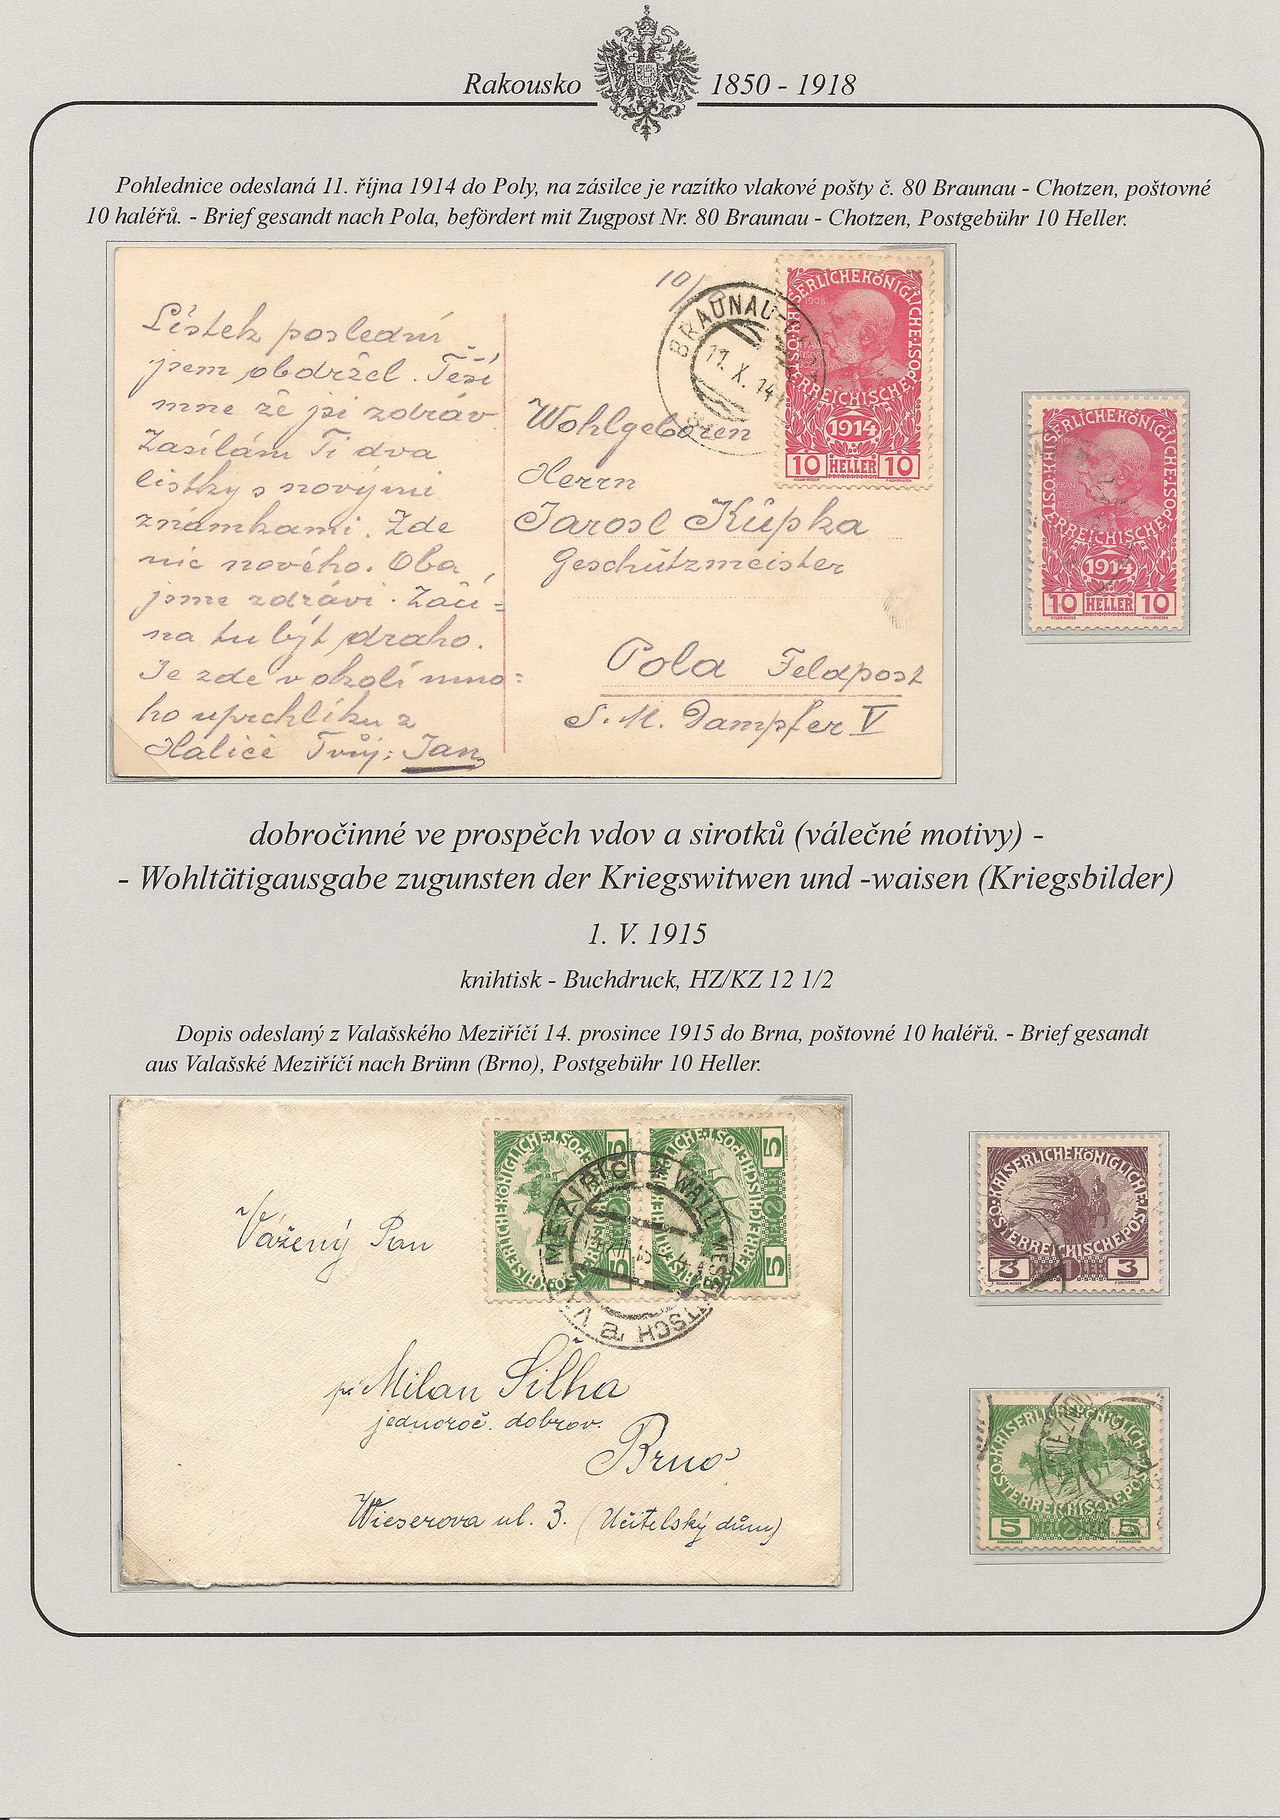 Rakousko 1850 - 1918
Pohlednice odeslaná 11. října 1914 do Poly, na zásilce je razítko vlakové pošty č. 80 Braunau - Chotzen, poštovné
10 haléřů. - Brief gesandt nach Pola, befördert mit Zugpost Nr. 80 Braunau - Chotzen, Postgebühr 10 Heller.
10/
BRAUNAU-
11. X. 14
1908
KAISERLICHEKÖNIGLICHE
ÖSTERREICHISCHE POST
1914
10 HELLER 10
Lístek poslední
jsem obdržel. Těší
mne že jsi zdráv
Zasílám Ti dva
lístky s novými
známkami. Zde
nic nového. Oba
jsme zdrávi. Začí=
na tu být draho.
Je zde v okolí mno=
ho uprchlíku z
Haliče Tvůj: Jan
Wohlgeboren
Herrn
Jarosl Kůpka
Geschützmeister
Pola Feldpost
S. M. Dampfer V
KAISERLICHEKÖNIGLICHE
ÖSTERREICHISCHE POST
1914
10 HELLER 10
dobročinné ve prospěch vdov a sirotků (válečné motivy) -
- Wohltätigausgabe zugunsten der Kriegswitwen und -waisen (Kriegsbilder)
1. V. 1915
knihtisk - Buchdruck, HZ/KZ 12 1/2
Dopis odeslaný z Valašského Meziříčí 14. prosince 1915 do Brna, poštovné 10 haléřů. - Brief gesandt
aus Valašské Meziříčí nach Brünn (Brno), Postgebühr 10 Heller.
Vážený Pan
Milan Šilha
jednoroč. dobrov.
Brno
Wieserova ul. 3. (Učitelský dům)
KAISERLICHEKÖNIGLICHE
ÖSTERREICHISCHE POST
3 HELLER 3
KAISERLICHEKÖNIGLICHE
ÖSTERREICHISCHE POST
5 HELLER 5